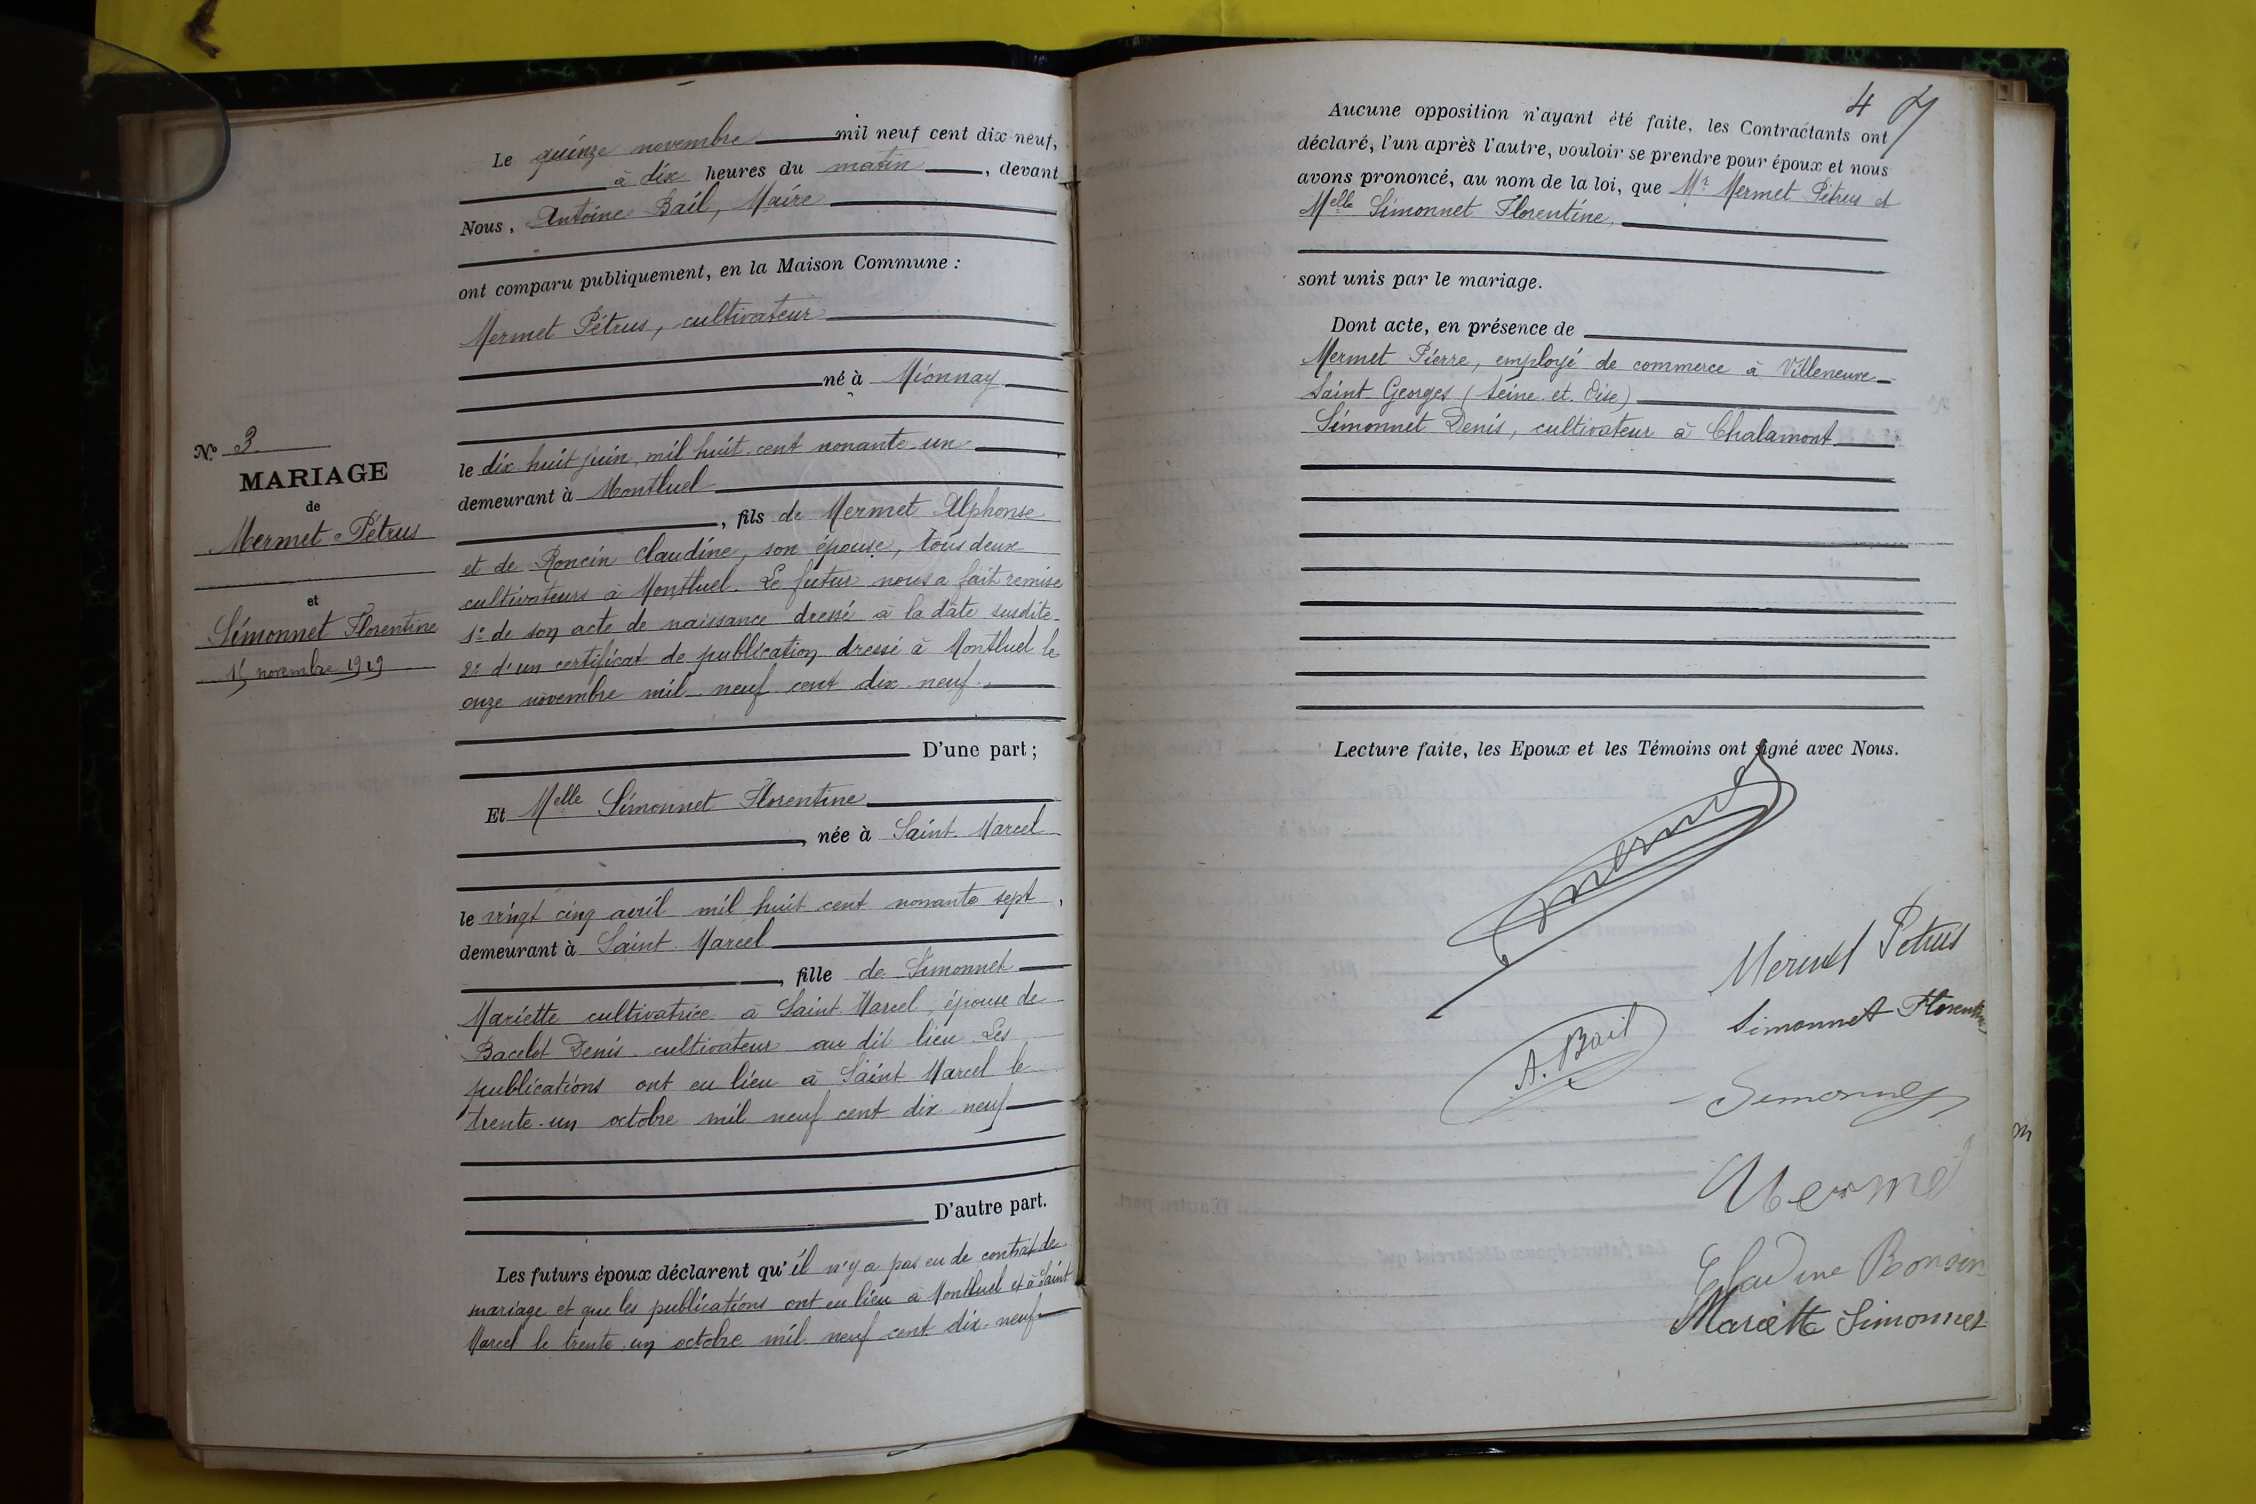 N° 3
MARIAGE
de
Mermet Pétrus
et
Simonnet Florentine
15 novembre 1919
Le quinze novembre mil neuf cent dix-neuf,
à dix heures du matin, devant
Nous, Antoine Bail, Maire
ont comparu publiquement, en la Maison Commune :
Mermet Pétrus, cultivateur
né à Mionnay
le dix huit juin, mil huit cent nonante un
demeurant à Montluel
, fils de Mermet Alphonse
et de Roncin Claudine, son épouse, tous deux
cultivateurs à Montluel. Le futur nous a fait remise
1° de son acte de naissance dressé à la date susdite
2° d'un certificat de publication dressé à Montluel le
onze novembre mil neuf cent dix-neuf.
D'une part ;
Et Melle Simonnet Florentine
, née à Saint-Marcel
le vingt cinq avril mil huit cent nonante sept,
demeurant à Saint-Marcel
, fille de Simonnet
Mariette cultivatrice à Saint-Marcel, épouse de
Bacelot Denis cultivateur au dit lieu. Les
publications ont eu lieu à Saint Marcel le
trente-un octobre mil neuf cent dix-neuf
D'autre part.
Les futurs époux déclarent qu'il n'y a pas eu de contrat de
mariage et que les publications ont eu lieu à Montluel et à Saint
Marcel le trente-un octobre mil neuf cent dix-neuf
4
Aucune opposition n'ayant été faite, les Contractants ont
déclaré, l'un après l'autre, vouloir se prendre pour époux et nous
avons prononcé, au nom de la loi, que Mr Mermet Pétrus et
Melle Simonnet Florentine,
sont unis par le mariage.
Dont acte, en présence de
Mermet Pierre, employé de commerce à Villeneuve-
Saint Georges (Seine-et-Oise)
Simonnet Denis, cultivateur à Chalamont
Lecture faite, les Epoux et les Témoins ont signé avec Nous.
Mermet
Mermet Petrus
Simonnet Florentine
A. Bail
Simonnet
Mermet
Claudine Ronsin
Mariette Simonnet